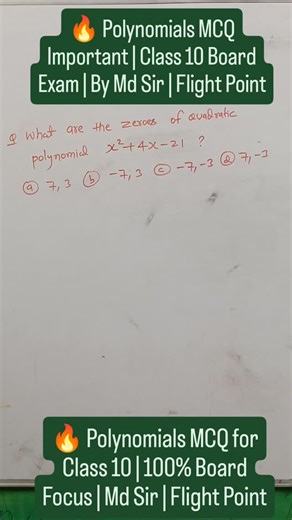 🔥 Polynomials MCQ
Important | Class 10 Board
Exam | By Md Sir | Flight Point
Q What are the zeroes of quadratic
polynomial x²+4x-21 ?
ⓐ 7, 3 ⓑ -7, 3 ⓒ -7, -3 ⓓ 7, -3
🔥 Polynomials MCQ for
Class 10 | 100% Board
Focus | Md Sir | Flight Point